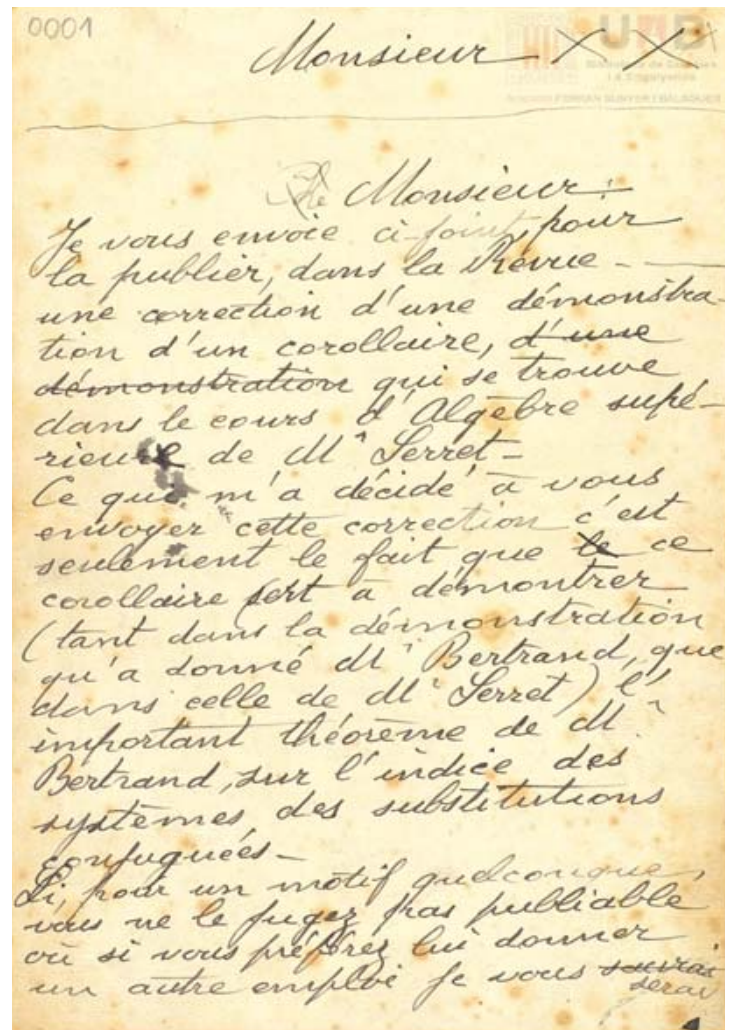 0001
UAB
Monsieur X X
Monsieur:
Je vous envoie ci-joint, pour
la publier, dans la Revue - —
une correction d'une démonstra-
tion d'un corollaire, d'une
démonstration qui se trouve
dans le cours d'Algèbre supé-
rieure de Mr Serret -
Ce qui m'a décidé à vous
envoyer cette correction c'est
seulement le fait que le ce
corollaire sert a démontrer
(tant dans la démonstration
qu'a donné Mr Bertrand, que
dans celle de Mr Serret) l'
important théorème de Mr
Bertrand, sur l'indice des
systèmes des substitutions
conjuguées -
Si, pour un motif quelconque,
vous ne le jugez pas publiable
où si vous préférez lui donner
un autre emploi je vous saurai
serai